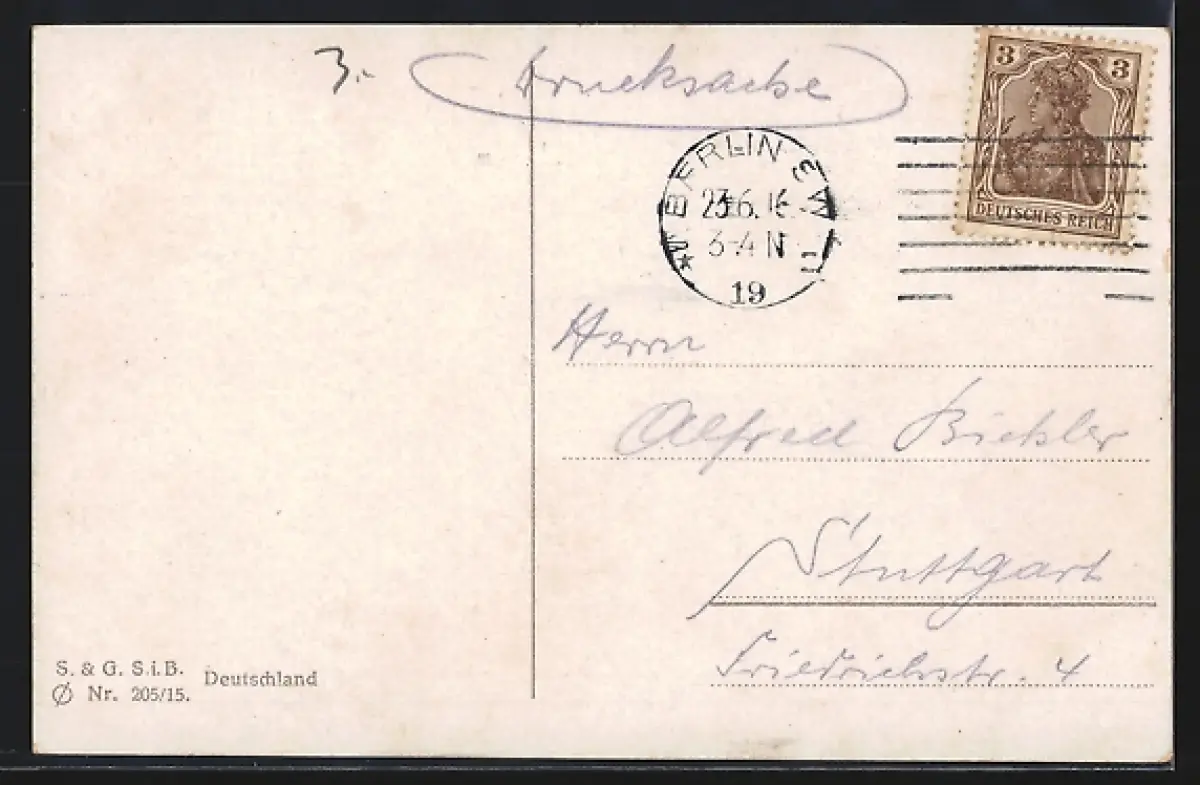 3.-
Drucksache
3 3
DEUTSCHES REICH
BERLIN
23.6.16
3-4 N
19
Herrn
Alfred Bickler
Stuttgart
Friedrichstr. 4
S. & G. S.i.B.
Nr. 205/15.
Deutschland